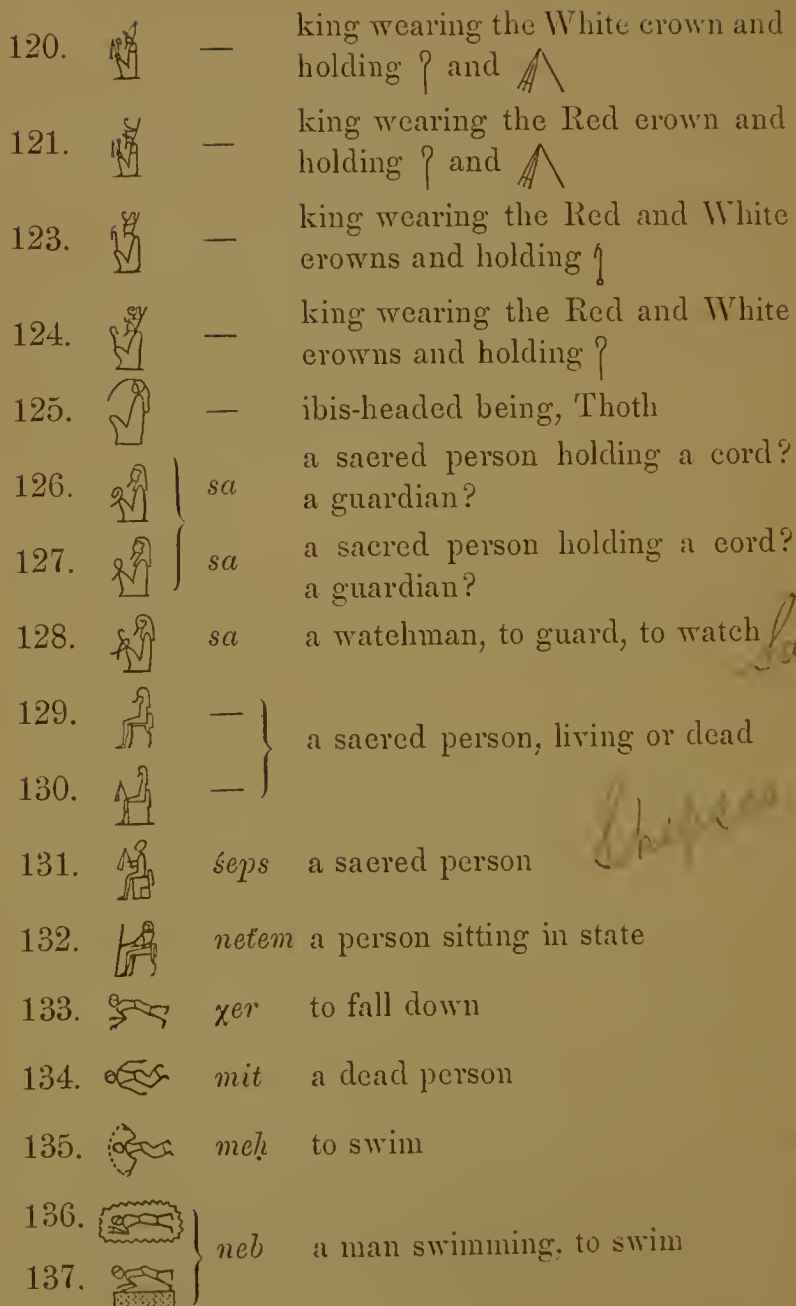 120. — king wearing the White crown and
holding 𓋾 and 𓌅
121. — king wearing the Red crown and
holding 𓋾 and 𓌅
123. — king wearing the Red and White
crowns and holding
124. — king wearing the Red and White
crowns and holding 𓋾
125. — ibis-headed being, Thoth
126. sa a sacred person holding a cord?
a guardian?
127. sa a sacred person holding a cord?
a guardian?
128. sa a watchman, to guard, to watch
129. —
a sacred person, living or dead
130. —
131. śeps a sacred person
132. neťem a person sitting in state
133. χer to fall down
134. mit a dead person
135. meḥ to swim
136.
neb a man swimming, to swim
137.